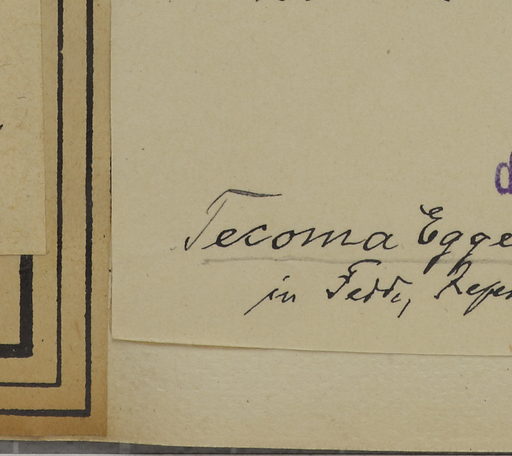 Tecoma Egge
in Fedd, Repe